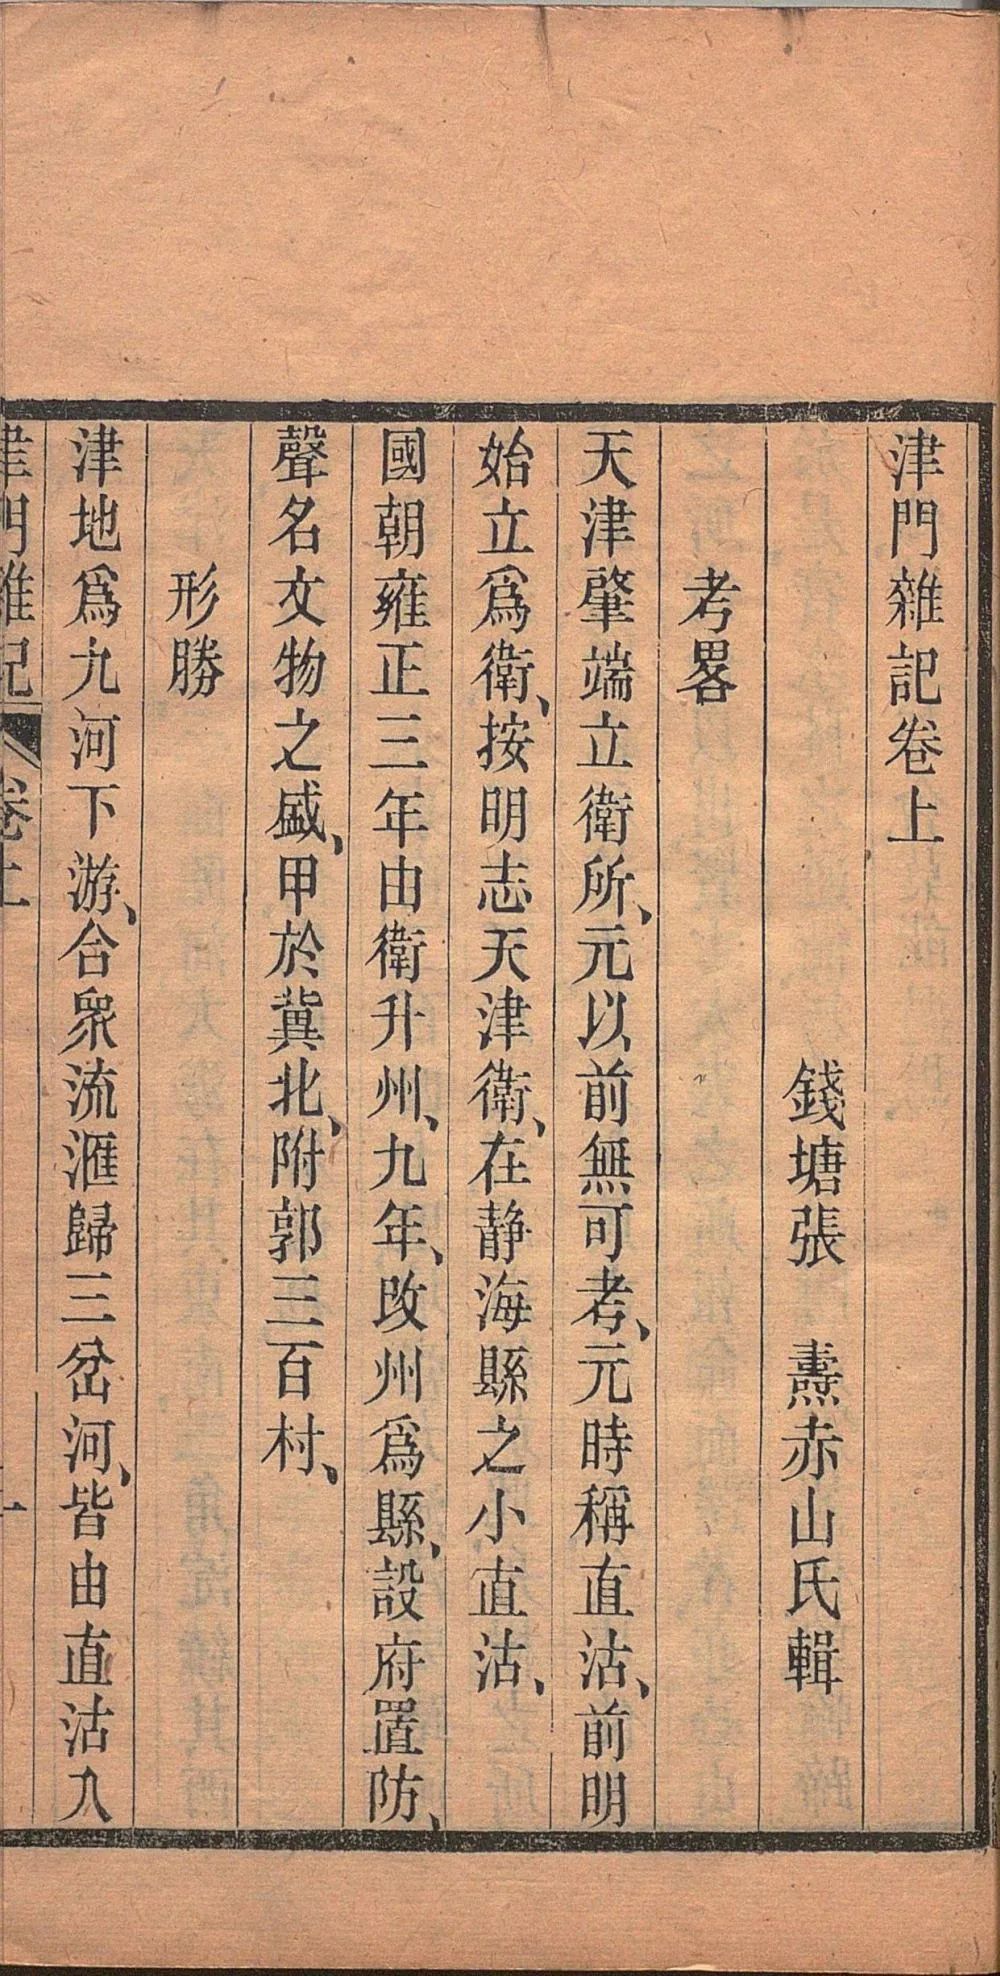 津門雜記卷上
錢塘張　燾赤山氏輯
考畧
天津肇端立衛所、元以前無可考、元時稱直沽、前明
始立爲衛、按明志天津衛、在静海縣之小直沽、
國朝雍正三年由衛升州、九年、改州爲縣、設府置防、
聲名文物之盛、甲於冀北、附郭三百村、
形勝
津地爲九河下游、合衆流滙歸三岔河、皆由直沽入
津門雜記 卷上 一